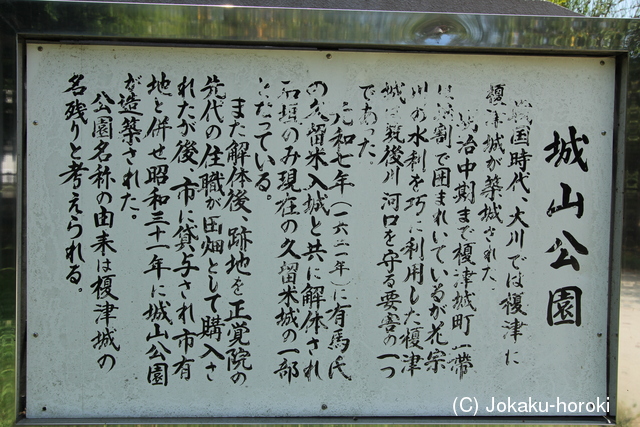 城山公園
戦国時代、大川では榎津に
榎津城が築城された。
明治中期まで榎津城町一帯
は堀割で囲まれているが花宗
川の水利を巧に利用した榎津
城は筑後川河口を守る要害の一つ
であった
元和七年(一六二一年)に有馬氏
の久留米入城と共に解体され
石垣のみ現在の久留米城の一部
となっている。
また解体後、跡地を正覚院の
先代の住職が田畑として購入さ
れたが後、市に貸与され市有
地と併せ昭和三十一年に城山公園
が造築された。
公園名称の由来は榎津城の
名残りと考えられる。
(C) Jokaku-horoki